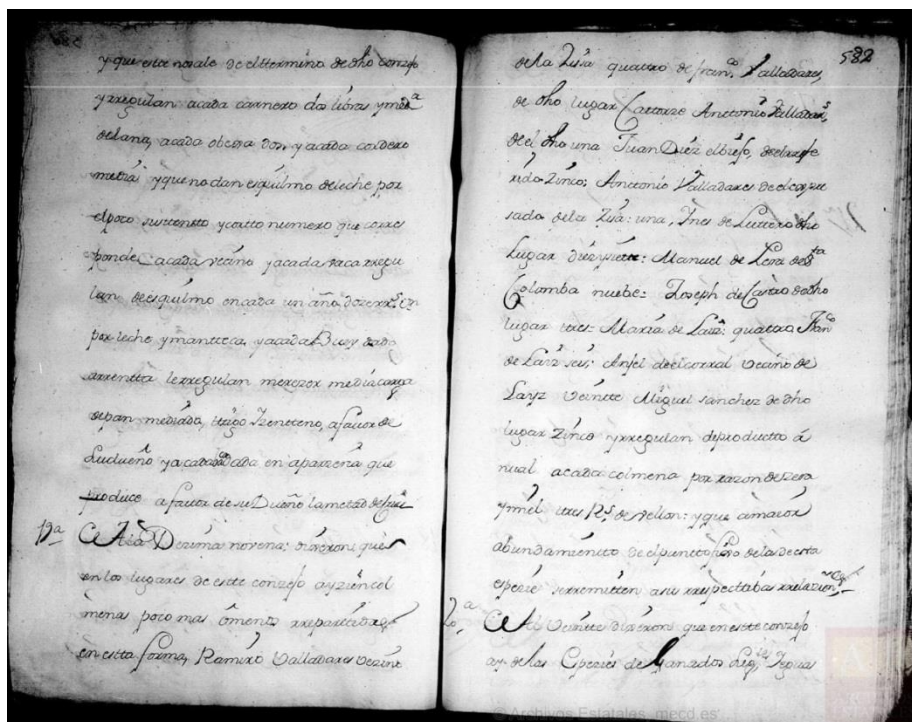 y que este no sale de el ttermino de dho conzejo
y rregulan acada carnero dos libras y medª
de lana, acada obexa dos, y acada cordero
media y que no dan esquilmo de leche por
el poco susttentto y cortto numero que corres
ponde acada vecino y acada vaca rregu
lan de esquilmo en cada un año doze rrˢ. en
por leche y mantteca, y acada Buey dado
arrentta le rregulan merezer media carga
de pan mediada, trigo y zentteno, a favor de
su dueño y acada dada en aparzeria que
produce a favor de su Dueño la metad de
19ª
A la Dezima novena; dixeron que
en los lugares de este conzejo ay zien col
menas poco mas ô menos rreparttidas
en estta forma, Ramiro Valladares vezino
582
de la Zisa quattro de franᶜᵒ. Valladares,
de dho lugar Cattorze Anttonio Valladarˢ,
de el dho una Juan Diez el biejo, de el rrefe
rido Zinco; Anttonio Valladares de el expre
sado de la Zisa: una, Ines de dho
Lugar diez y siette: Manuel de Lera de Sta
Colomba nuebe: Joseph de Castro de dho
lugar tres: Maria de Laiz: quattro, Franᶜᵒ
de Laiz seis; Anjel de el corral vecino de
Layz veintte Miguel sanchez de dho
lugar Zinco y rregulan de productto á
nual acada colmena por razon de zera
y miel tres Rˢ. de vellon: y que a maior
abundamientto de el puntto fixo de las de esta
espezie se rremitten a sus rrespecttibas rrelazionˢ
20ª
A la veintte dixeron: que en estte conzejo
ay de las Espezies de Ganados Yeguas
© Archivos Estatales, mecd.es